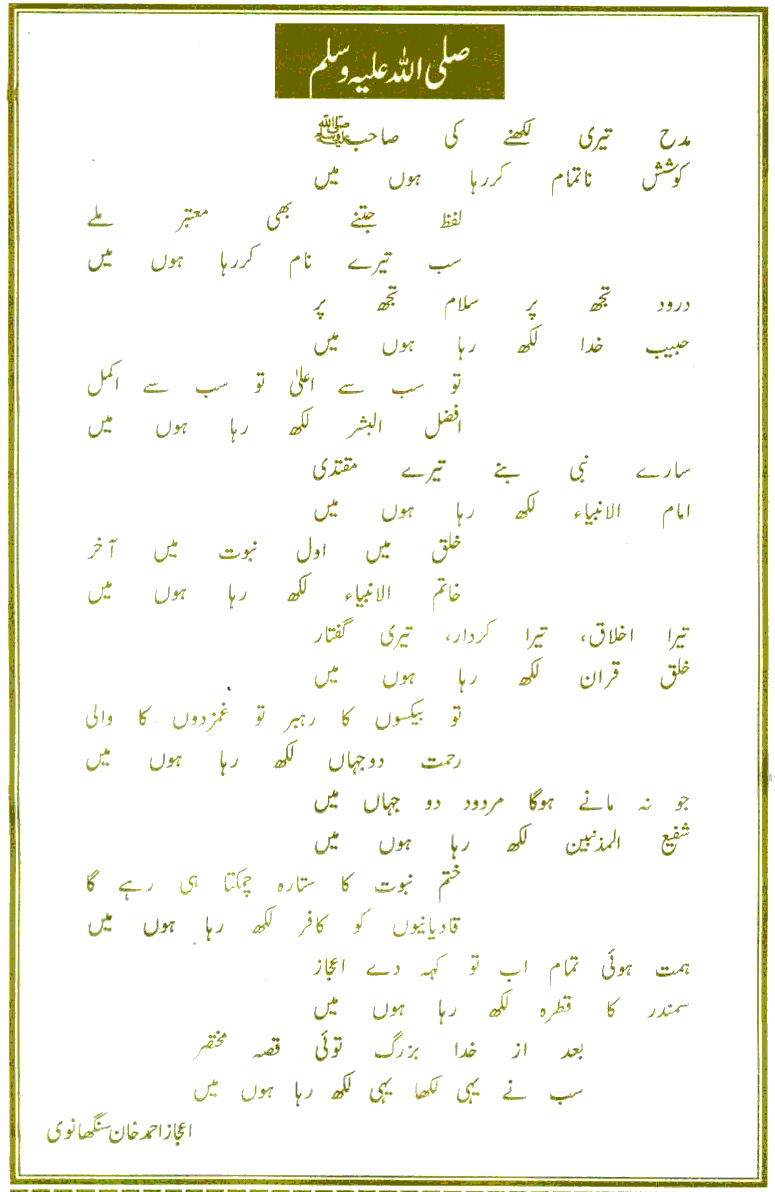 صلی اللہ علیہ وسلم
مدح تیری لکھنے کی صاحبﷺ
کوشش ناتمام کررہا ہوں میں
لفظ جتنے بھی معتبر ملے
سب تیرے نام کررہا ہوں میں
درود تجھ پر سلام تجھ پر
حبیب خدا لکھ رہا ہوں میں
تو سب سے اعلیٰ تو سب سے اکمل
افضل البشر لکھ رہا ہوں میں
سارے نبی بنے تیرے مقتدی
امام الانبیاء لکھ رہا ہوں میں
خلق میں اول نبوت میں آخر
خاتم الانبیاء لکھ رہا ہوں میں
تیرا اخلاق، تیرا کردار، تیری گفتار
خلق قران لکھ رہا ہوں میں
تو بیکسوں کا رہبر تو غمزدوں کا والی
رحمت دوجہاں لکھ رہا ہوں میں
جو نہ مانے ہوگا مردود دو جہاں میں
شفیع المذنبین لکھ رہا ہوں میں
ختم نبوت کا ستارہ چمکتا ہی رہے گا
قادیانیوں کو کافر لکھ رہا ہوں میں
ہمت ہوئی تمام اب تو کہہ دے اعجاز
سمندر کا قطرہ لکھ رہا ہوں میں
بعد از خدا بزرگ توئی قصہ مختصر
سب نے یہی لکھا یہی لکھ رہا ہوں میں
اعجاز احمد خان سنگھانوی